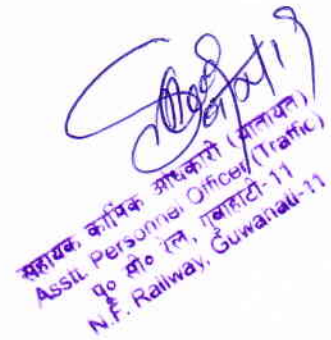 सहायक कार्मिक अधिकारी (यातायत)
Asstt. Personnel Officer (Traffic)
पू० सी० रेल, गुवाहाटी-11
N.F. Railway, Guwahati-11